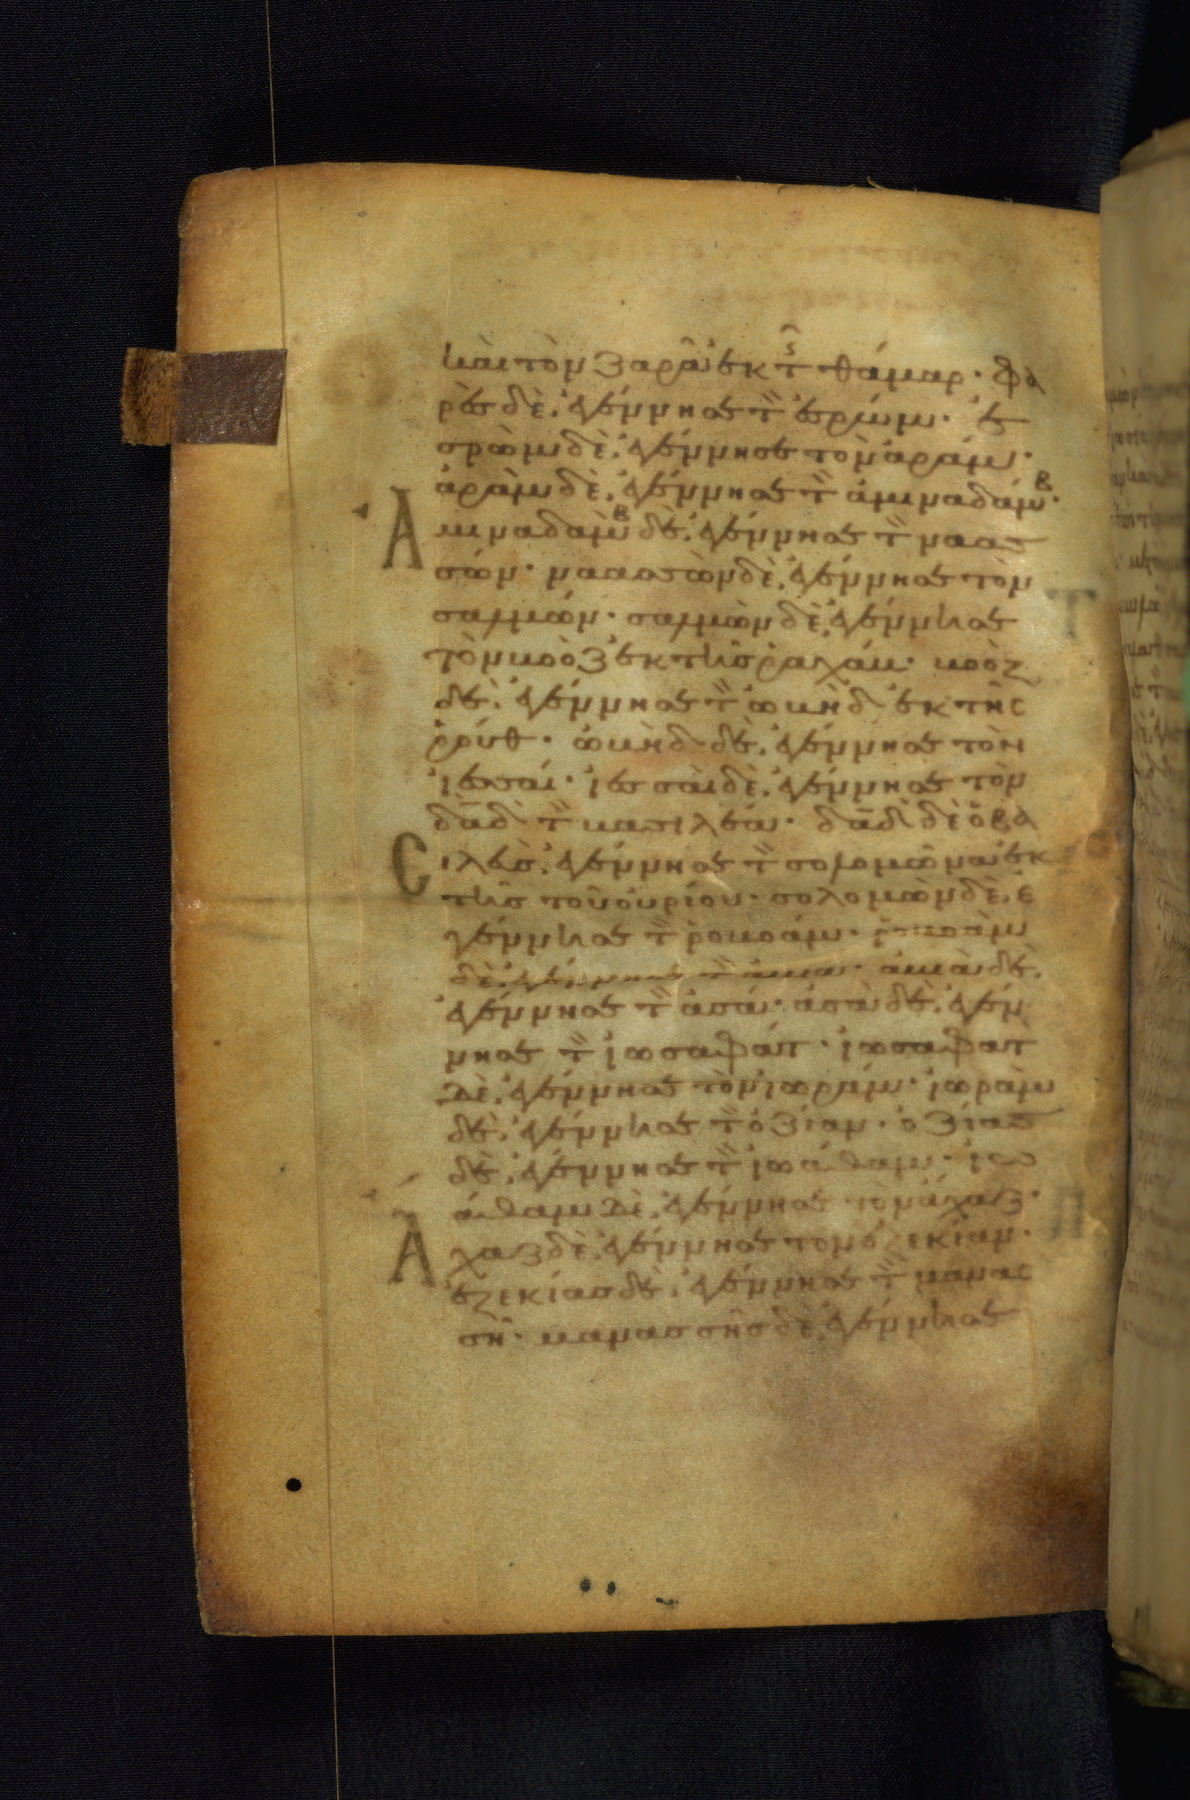 καὶ τὸν ζαρὰ ἐκ τῆς θάμαρ· φα
ρὲς δὲ, ἐγέννησε τὸν ἐσρώμ· ἐ
σρὼμ δὲ, ἐγέννησε τὸν ἀράμ·
ἀρὰμ δὲ, ἐγέννησε τὸν ἀμιναδάμβ·
Αμιναδὰμβ δὲ, ἐγέννησε τὸν ναασ
σών· ναασσὼν δὲ, ἐγέννησε τὸν
σαλμών· σαλμὼν δὲ, ἐγέννησε
τὸν βοὸζ ἐκ τῆς ῥαχάβ· βοὸζ
δὲ, ἐγέννησε τὸν ὠβὴδ ἐκ τῆς
ῥούθ· ὠβὴδ δὲ, ἐγέννησε τὸν
ἰεσσαί· ἰεσσαὶ δὲ, ἐγέννησε τὸν
δαδ τὸν βασιλέα· δαδ δὲ ὁ βα
Σιλεὺς, ἐγέννησε τὸν σολομῶνα ἐκ
τῆς τοῦ οὐρίου· σολομὼν δὲ, ἐ
γέννησε τὸν ῥοβοάμ· ῥοβοὰμ
δὲ, ἐγέννησε τὸν ἀβιά· ἀβιὰ δὲ,
ἐγέννησε τὸν ἀσά· ἀσὰ δὲ, ἐγέν
νησε τὸν ἰωσαφάτ· ἰωσαφὰτ
δὲ, ἐγέννησε τὸν ἰωράμ· ἰωρὰμ
δὲ, ἐγέννησε τὸν ὀζίαν· ὀζίας
δὲ, ἐγέννησε τὸν ἰωάθαμ· ἰω
άθαμ δὲ, ἐγέννησε τὸν ἄχαζ·
Ἄχαζ δὲ, ἐγέννησε τὸν ἐζεκίαν·
ἐζεκίας δὲ, ἐγέννησε τὸν μανας
σῆ· μανασσῆς δὲ, ἐγέννησε